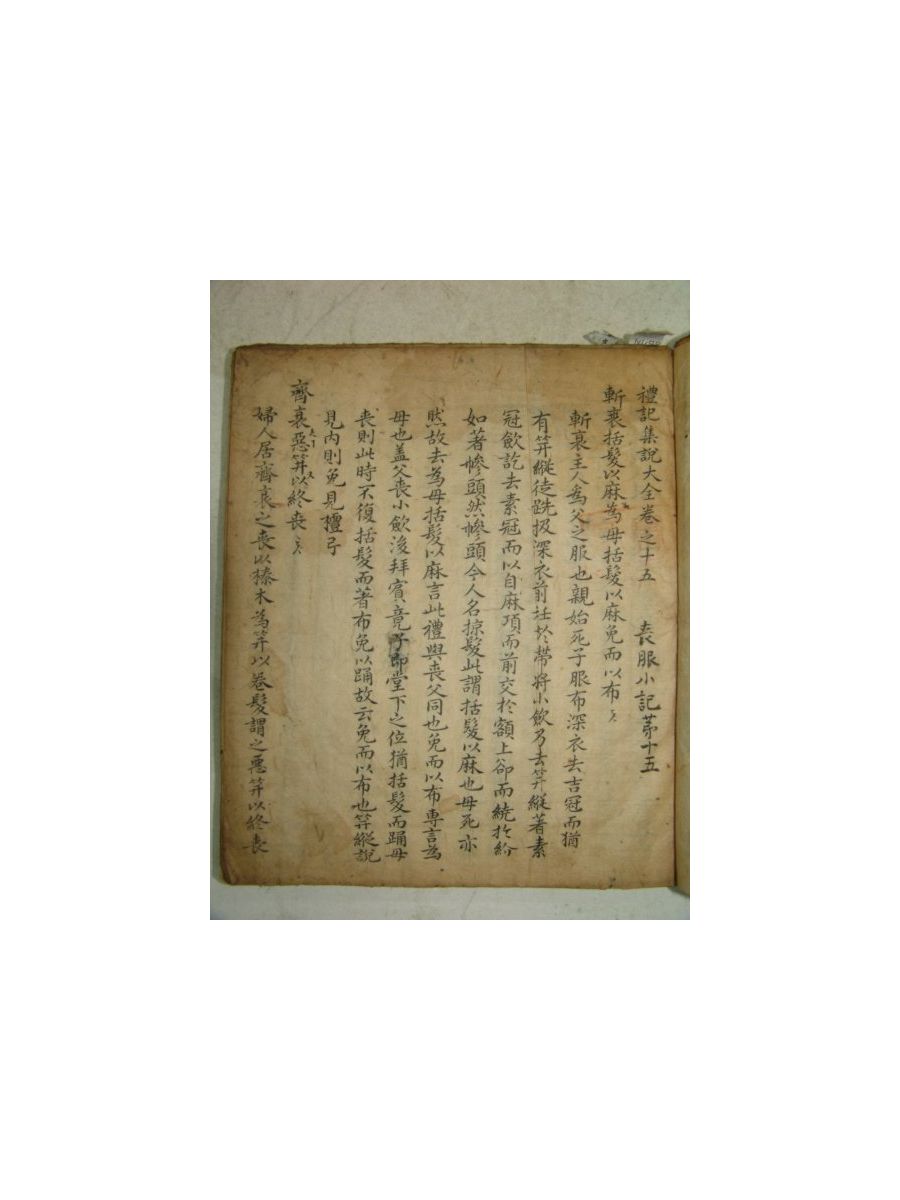 禮記集說大全卷之十五 喪服小記第十五
斬衰括髮以麻為母括髮以麻免而以布
斬衰主人為父之服也親始死子服布深衣去吉冠而猶
有笄縱徒跣扱深衣前衽於帶將小斂乃去笄縱著素
冠斂訖去素冠而以自麻項而前交於額上卻而繞於紒
如著幓頭然幓頭今人名掠髮此謂括髮以麻也母死亦
然故去為母括髮以麻言此禮與喪父同也免而以布專言為
母也盖父喪小斂後拜賓竟子即堂下之位猶括髮而踊母
喪則此時不復括髮而著布免以踊故云免而以布也笄縱說
見內則免見擅弓
齊衰惡笄以終喪
婦人居齊衰之喪以榛木為笄以卷髮謂之惡笄以終喪